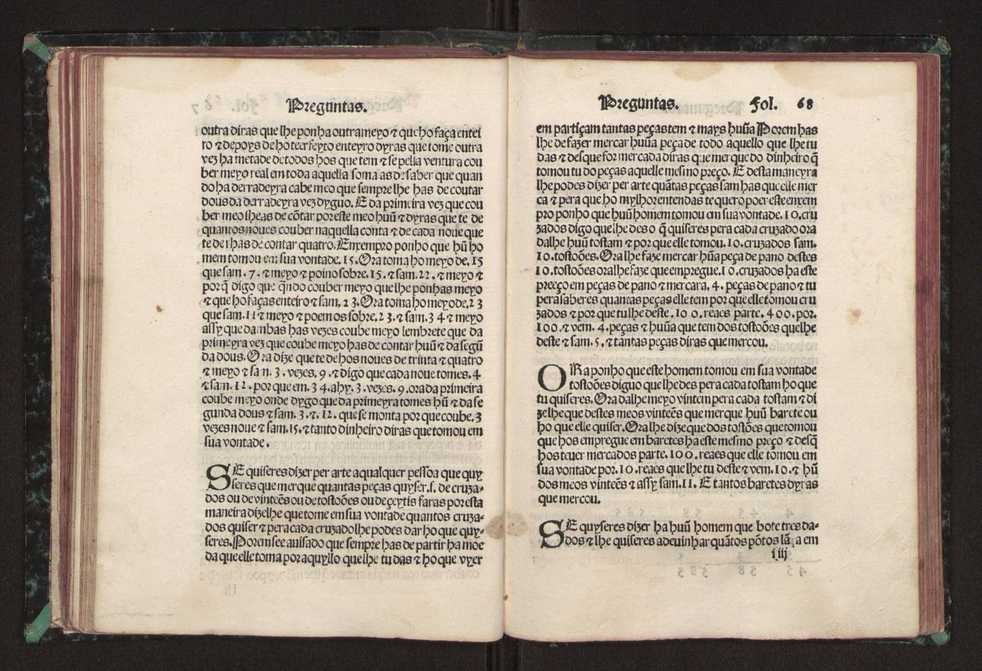 Preguntas.
outra diras que lhe ponha outra meyo & que ho faça entei
ro & depoys de ho teer feyto enteyro dyras que tome outra
vez ha metade de todos hos que tem & se pella ventura cou
ber meyo real em toda aquella soma as de saber que quan
do ha derradeyra cabe meo que sempre lhe has de contar
dous da derradeyra vez dyguo. E da primeira vez que cou
ber meo lheas de cõtar por este meo huũ & dyras que te de
quantos noues couber naquella conta & de cada noue que
te der has de contar quatro. Enxenpro ponho que hũ ho
mem tomou em sua vontade. 15. Ora toma ho meyo de. 15
que sam. 7. & meyo & poino sobre. 15. & sam. 22. & meyo &
por q̃ digo que q̃ndo couber meyo que lhe ponhas meyo
& que ho faças enteiro & sam. 23. Ora toma ho meyo de. 23
que sam. 11 & meyo & poem os sobre. 23. & sam. 34 & meyo
assy que dambas has vezes coube meyo lembrete que da
primeyra vez que coube meyo has de contar huũ & da segũ
da dous. Ora dize que te de hos noues de trinta & quatro
& meyo & sam. 3. vezes. 9. & digo que cada noue tomes. 4
& sam. 12. por que em. 34. ahy. 3. vezes. 9. ora da primeira
coube meyo onde dygo que da primeyra tomes hũ & da se
gunda dous & sam. 3. &. 12. que se monta por que coube. 3
vezes noue & sam. 15. & tanto dinheiro diras que tomou em
sua vontade.
SE quiseres dizer per arte a qualquer pessoa que quy
seres que merque quantas peças quyser. s. de cruza-
dos ou de vinteẽs ou de tostoões ou de ceytis faras por esta
maneira dizelhe que tome em sua vontade quantos cruza-
dos quiser & pera cada cruzado lhe podes dar ho que quy-
seres. Porem see auisado que sempre has de partir ha moe
da que elle toma por aquyllo que lhe tu das & ho que vyer
Preguntas. Fol. 68
em partiçam tantas peças tem & mays huũa Porem has
lhe de fazer mercar huũa peça de todo aquello que lhe tu
das & desque for mercada diras que merque do dinheiro q̃
tomou tu do peças aquelle mesmo preço. E desta maneyra
lhe podes dizer per arte quãntas peças sam has que elle mer
ca & pera que ho mylhor entendas te quero poer este enxem
pro ponho que huũ homem tomou em sua vontade. 10. cru
zados digo que lhe des o q̃ quiseres pera cada cruzado ora
dalhe huũ tostam & por que elle tomou. 10. cruzados sam.
10. tostoões. Ora lhe faze mercar hũa peça de pano destes
10. tostoões ora lhe faze que empregue. 10. cruzados ha este
preeço em peças de pano & mercara. 4. peças de pano & tu
pera saberes quantas peças elle tem por que elle tomou cru
zados & por que tu lhe deste. 100. reaes parte. 400. por.
100. & vem. 4. peças & huũa que tem dos tostoões que lhe
deste & sam. 5. & tantas peças diras que mercou.
ORa ponho que este homem tomou em sua vontade
tostoões diguo que lhe des pera cada tostam ho que
tu quiseres. Ora dalhe meyo vintem pera cada tostam & di
zelhe que destes meos vinteẽs que merque huũ barete ou
ho que elle quiser. Ora lhe dize que dos tostões que tomou
que hos empregue em baretes ha este mesmo preço & desq̃
hos teuer mercados parte. 100. reaes que elle tomou em
sua vontade por. 10. reaes que lhe tu deste & vem. 10. & hũ
dos meos vinteẽs & assy sam. 11. E tantos baretes dyras
que mercou.
SE quyseres dizer ha huũ homem que bote tres da-
dos & lhe quiseres adeuinhar quãntos põtos lãça em
i iij